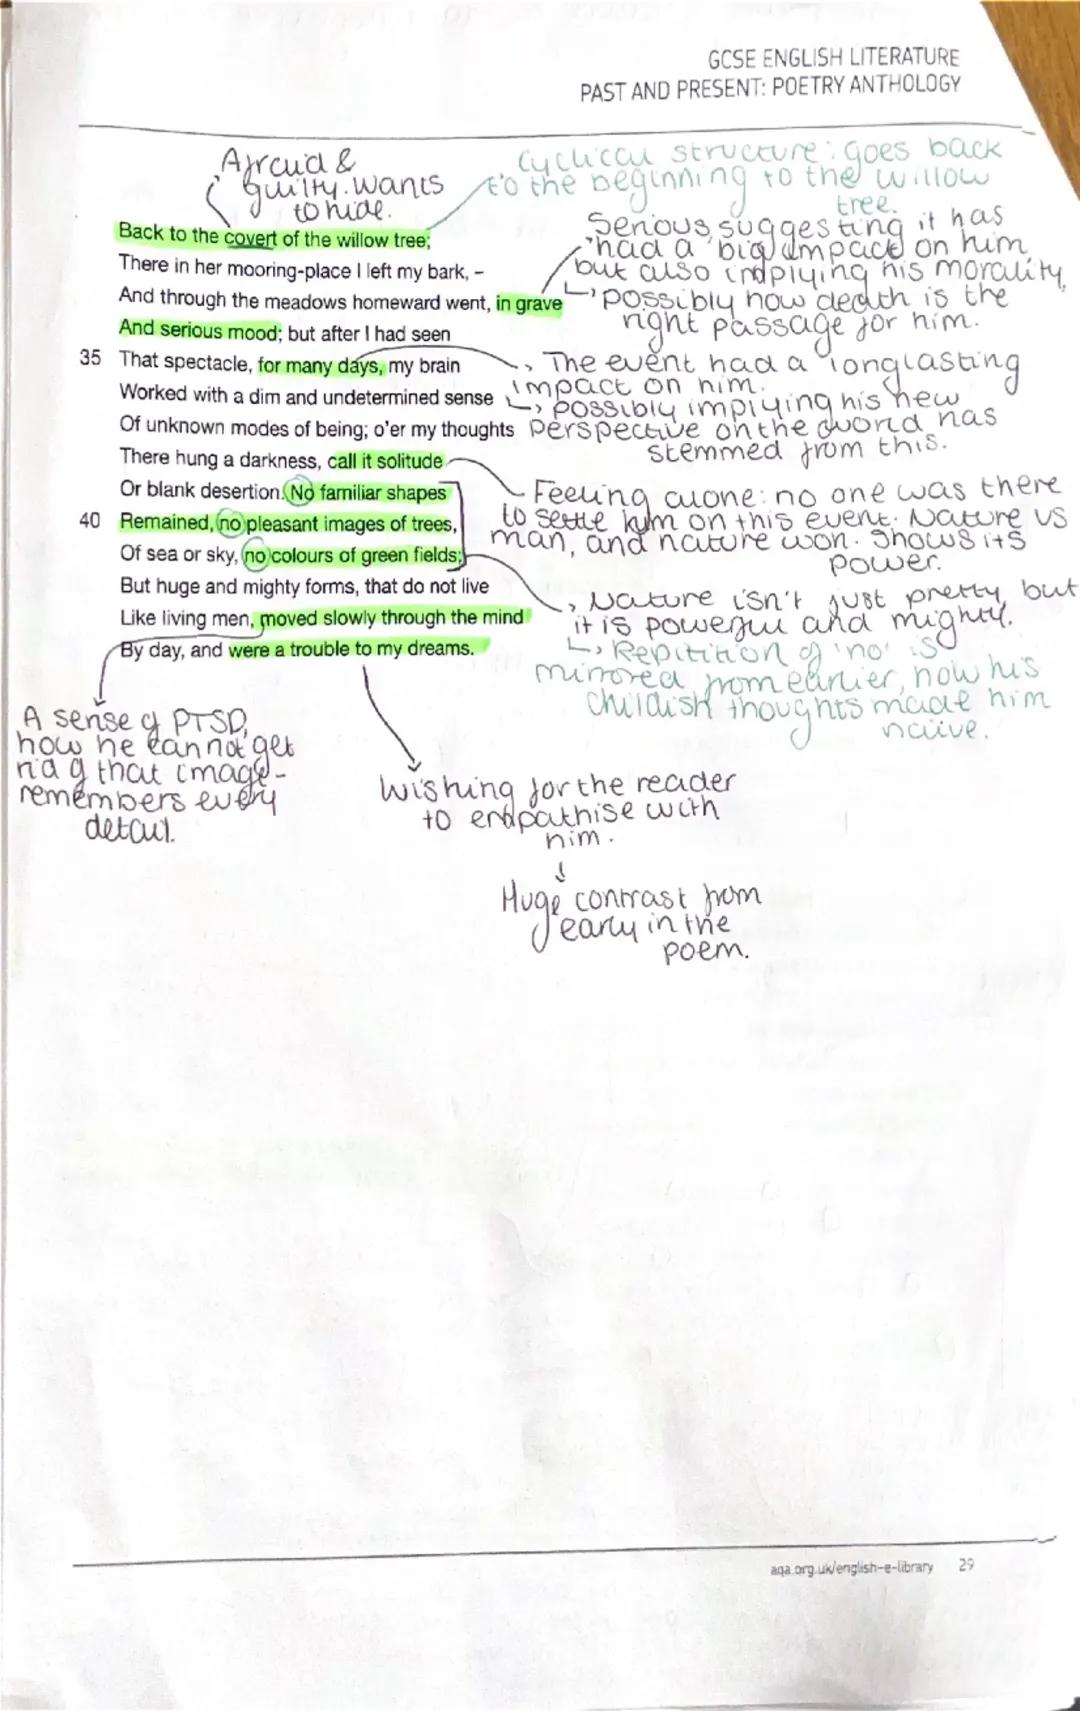 GCSE ENGLISH LITERATURE
PAST AND PRESENT: POETRY ANTHOLOGY
Afraid &
guilty. wants
to hide.
Cyclical structure: goes back
to the beginning to the willow
tree.
Back to the covert of the willow tree;
There in her mooring-place I left my bark, –
And through the meadows homeward went, in grave
And serious mood; but after I had seen
35 That spectacle, for many days, my brain
Worked with a dim and undetermined sense
Of unknown modes of being; o'er my thoughts
There hung a darkness, call it solitude
Or blank desertion. No familiar shapes
40 Remained, no pleasant images of trees,
Of sea or sky, no colours of green fields;
But huge and mighty forms, that do not live
Like living men, moved slowly through the mind
By day, and were a trouble to my dreams.
Serious, suggesting it has
had a big impact on him,
but also implying his morality,
possibly how death is the
right passage for him.
The event had a longlasting
impact on him.
possibly implying his new
perspective on the world has
stemmed from this.
Feeling alone: no one was there
to settle him on this event. Nature vs
man, and nature won. Shows its
power.
Nature isn't just pretty, but
it is powerful and mighty.
Repitition of 'no' is
mirrored from earlier, how his
childish thoughts made him
naive.
A sense of PTSD,
how he cannot get
rid of that image -
remembers every
detail.
Wishing for the reader
to empathise with
him.
Huge contrast from
early in the
poem.
aqa.org.uk/english-e-library 29